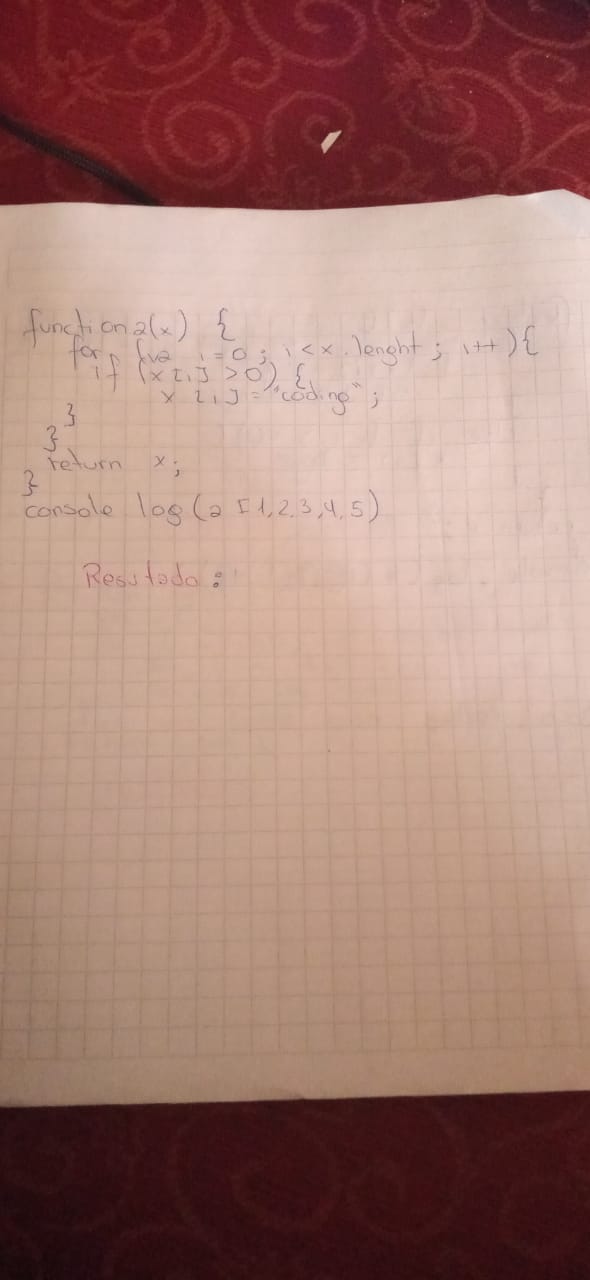 function a(x) {
for (va i=0; i<x.lenght; i++){
if (x[i]>0) {
x[i]="coding";
}
}
return x;
}
console log(a [1,2,3,4,5)
Resutado: